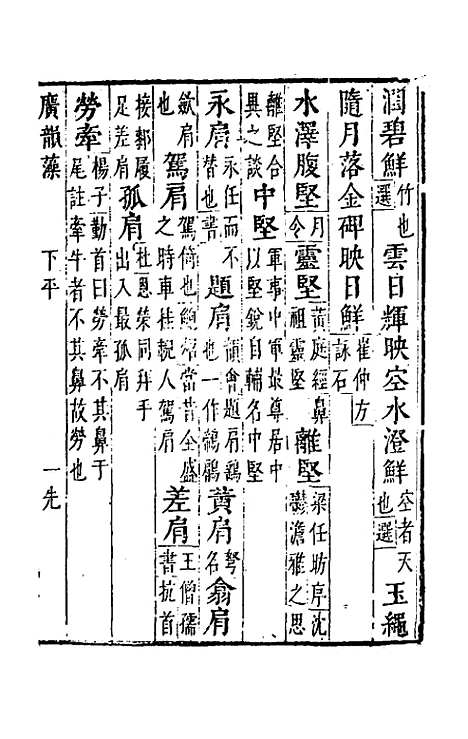 潤碧鮮竹也選雲日輝映空水澄鮮空者天也選玉繩
隨月落金碑映日鮮崔仲方詠石
水澤腹堅月令靈堅黃庭經鼻祖靈堅離堅梁任昉序沈鬱澹雅之思
離堅合異之談中堅軍事中軍最尊居中以堅銳自輔名中堅
永肩永任而不替也書題肩領會題肩鷂也一作鶙鵳黃肩弩名翕肩
斂肩也駕肩駕倚也鮑照當昔全盛之時車挂轊人駕肩差肩王僧孺書抗首
接鄰履足差肩孤肩杜恩榮同拜手出入最孤肩
勞牽楊子勤首曰勞牽不其鼻于尾註牽牛者不其鼻故勞也
廣韻藻 下平 一先